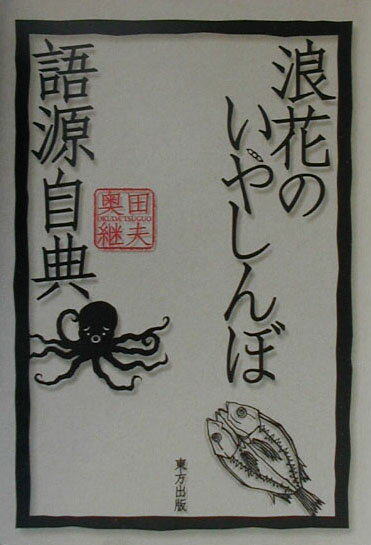 浪花の
いやしんぼ
語源自典
奥田
継夫
OKUDA TSUGUO
東方出版